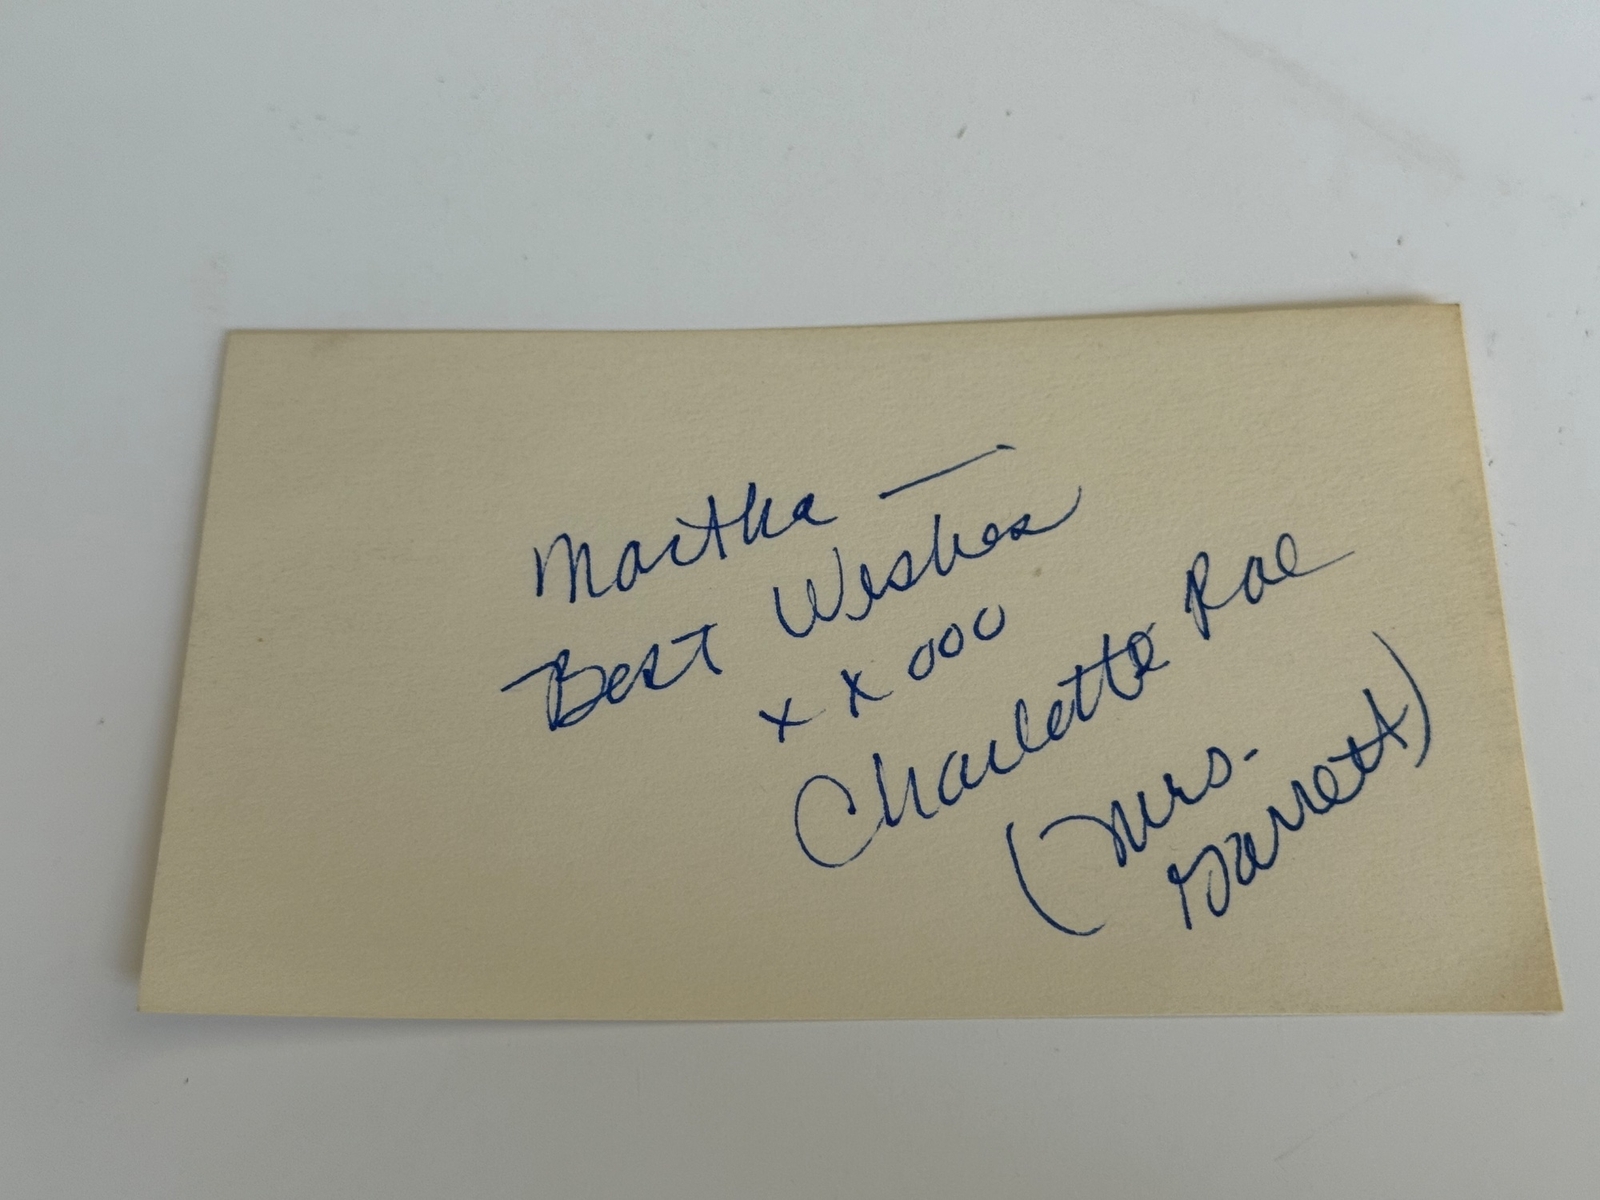 Martha —
Best Wishes
x x ooo
Charlotte Rae
(Mrs.
Garrett)